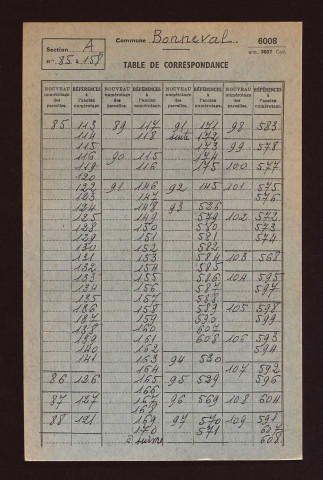 Section A
Commune Bonneval
6008
nos 85 à 158
TABLE DE CORRESPONDANCE
NOUVEAU numérotage des parcelles. RÉFÉRENCES à l'ancien numérotage. NOUVEAU numérotage des parcelles. RÉFÉRENCES à l'ancien numérotage. NOUVEAU numérotage des parcelles. RÉFÉRENCES à l'ancien numérotage. NOUVEAU numérotage des parcelles. RÉFÉRENCES à l'ancien numérotage.
85 113 89 117 91 171 98 583
114 118 suite 172
115 173 99 578
116 90 115 174
119 116 175 100 577
120
122 91 146 92 145 101 575
123 147 576
124 148 93 526
125 149 579 102 572
128 150 580 573
129 151 581 574
130 152 582
131 153 584 103 568
132 154 585
133 155 586 104 595
134 156 587 597
135 157 588
136 158 589 105 598
137 159 590 599
138 160 607
139 161 608 106 593
140 162 594
141 163 94 530
164 107 592
86 126 165 95 529 596
166
87 127 167 96 569 108 604
168
88 121 169 97 570 109 591
170 571 607
à suivre 608